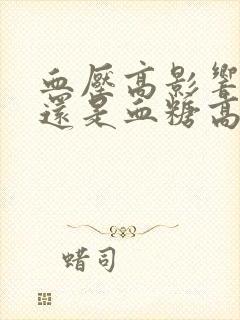 血壓高影響
還是血糖高
蜡司